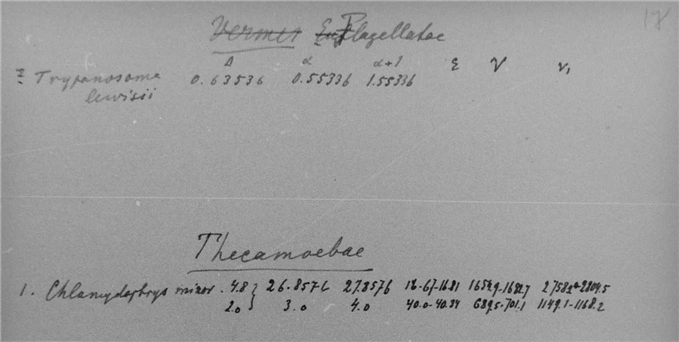 17
Vermes Flagellatae
Δ α α+1 ε V v₁
Trypanosoma 0.63536 0.55336 1.55336
lewisii
Thecamoebae
1. Chlamydophrys minor . 4.8 } 26.8576 27.8576 16.67-16.81
2.0 3.0 4.0 40.0-40.34 689.5-701.1 1149.1-1168.2